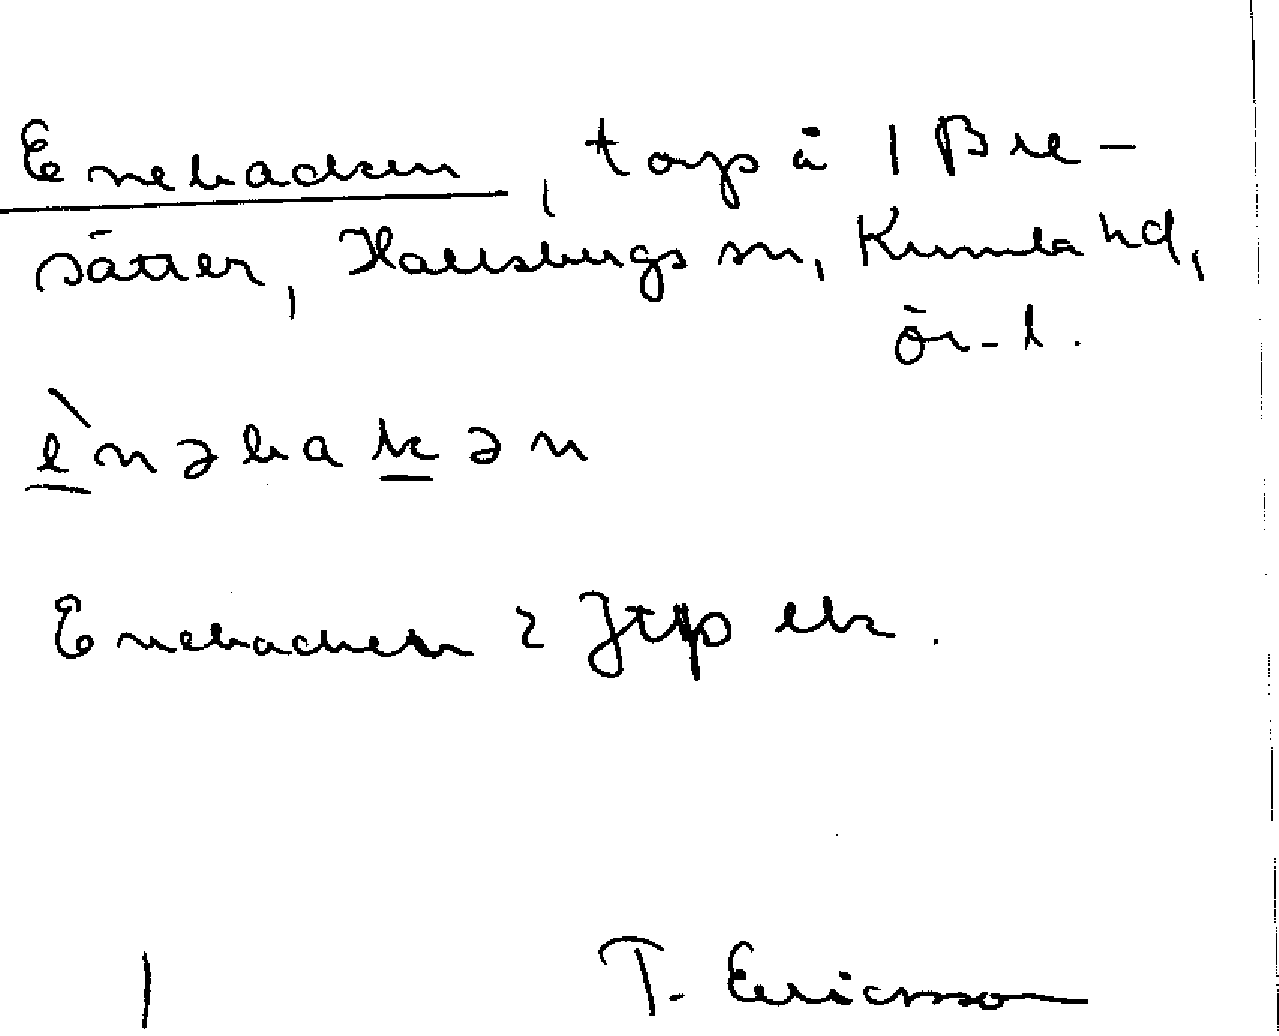 Enebacken, torp å 1 Bre-
sätter, Hallsbergs sn, Kumla hd,
Ör. l.
ènəbakən
Enebacken 2 Jtp ek.
1 T. Ericsson